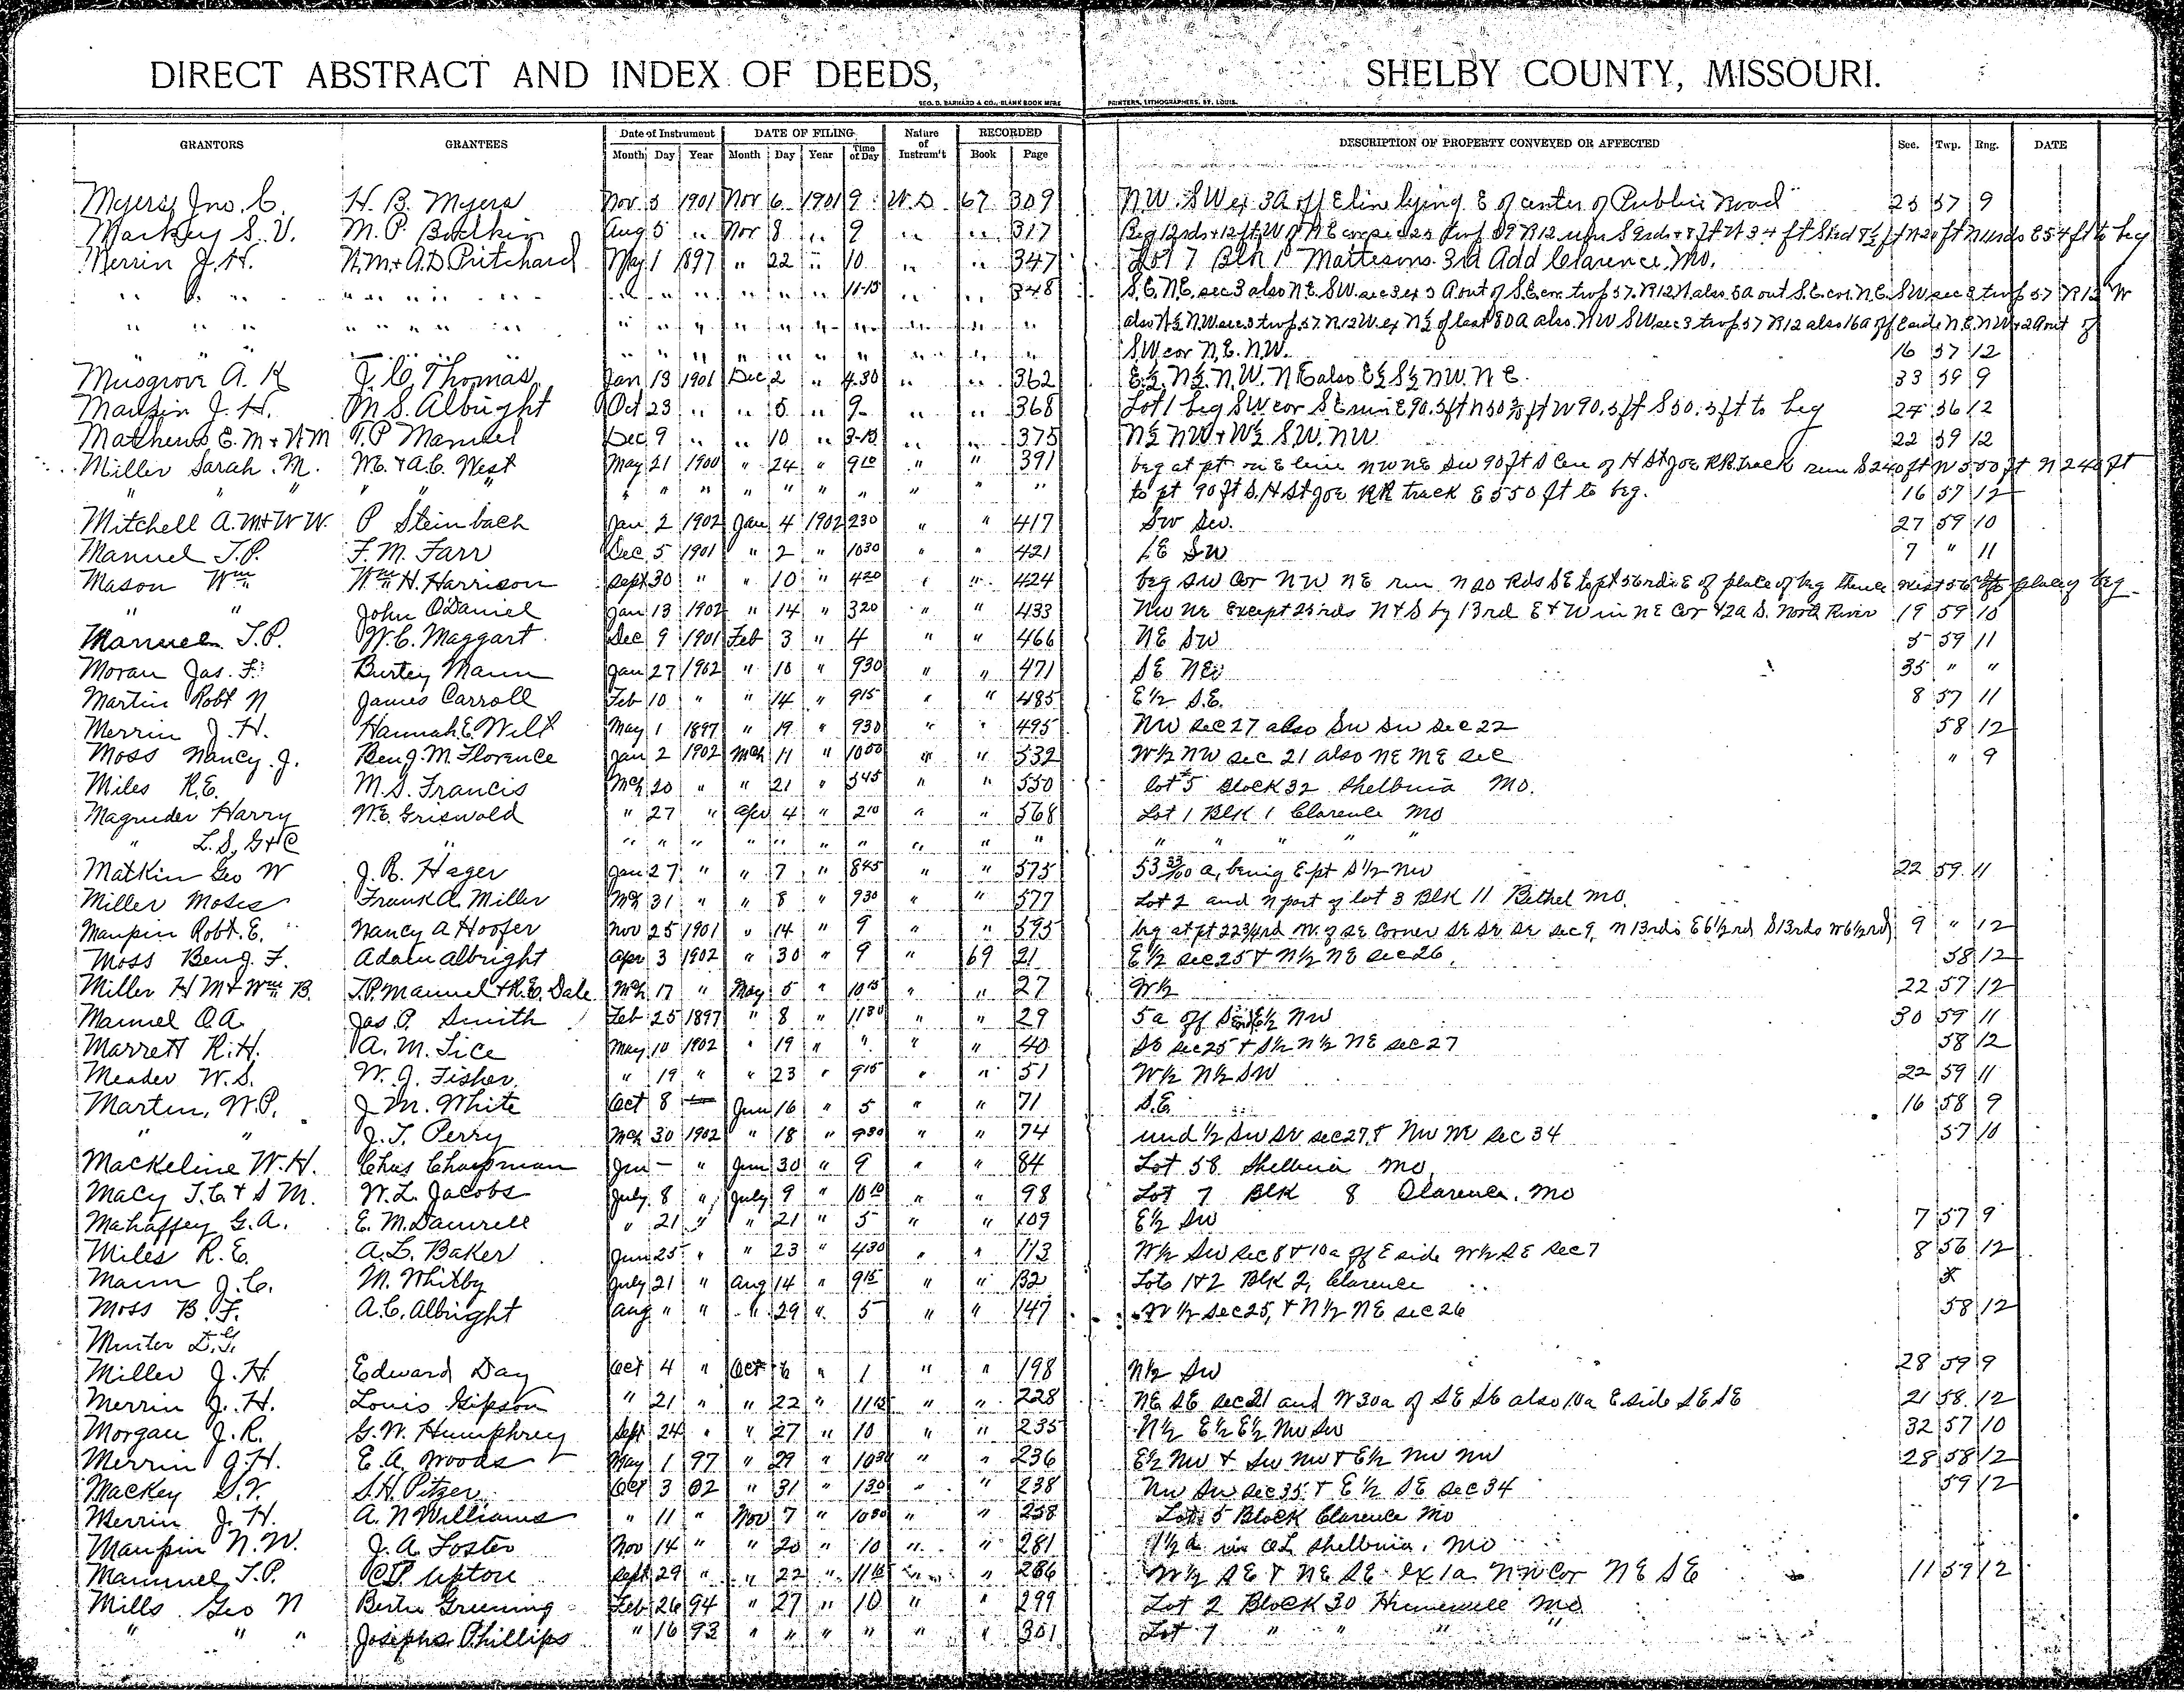 DIRECT ABSTRACT AND INDEX OF DEEDS, SHELBY COUNTY, MISSOURI.
GEO. D. BARNARD & CO., BLANK BOOK MFRS PRINTERS, LITHOGRAPHERS, ST. LOUIS.
GRANTORS GRANTEES Date of Instrument DATE OF FILING Nature of Instrum't RECORDED DESCRIPTION OF PROPERTY CONVEYED OR AFFECTED Sec. Twp. Rng. DATE
Month Day Year Month Day Year Time of Day Book Page
Myers Jno. C. H. B. Myers Nov 5 1901 Nov 6 1901 9 W.D 67 309 NW. SW ex 3A off E line lying E of center of Public Road 25 57 9
Markey S. V. M. P. Bodkin Aug 5 " Nov 8 " 9 " " 317 Beg 12rds + 12 ft W of NE cor sec 23 twp 59 R12
Merrin J. H. N.M + A.D. Pritchard May 1 1897 " 22 " 10 " " 347 Lot 7 Blk 1 Mattesons 3rd Add Clarence, Mo.
" " " " " " " " " " " " " 11-15 " " 348 S.E. NE. sec 3 also NE. SW. sec 3 ex 3 A out of S.E. cor. twp 57. R12 also 5a out S.E. cor. N.E. SW sec 3 twp 57 R12 W
" " " " " " " " " " " " " " " " " also N½ NW sec 3 twp. 57 R12 W. ex N½ of last 80 a also. NW SW sec 3 twp. 57 R12 also 16a off E side N.E. NW + 2A out of
" " " " " " " " " " " " SW cor N.E. N.W. 16 57 12
Musgrove A. K J. C. Thomas Jan 13 1901 Dec 2 " 4.30 " " 362 E½. N½. N.W. NE also E½ S½ NW. N E. 33 59 9
Maupin J. H. M S. Albright Oct 23 " " 5 " 9- " " 368 Lot 1 beg SW cor SE run E 90.5 ft N 50 ft W 90.5 ft S 50.5 ft to beg 24 56 12
Mathews E. M + W M T. P Manuel Dec 9 " " 10 " 3-15 " " 375 N½ NW + W½ SW. NW 22 59 12
Miller Sarah M. W.E. + A.C. West May 21 1900 " 24 " 9 10 " " 391 beg at pt on E line NW NE SW 90 ft S Cen of H St Joe RR Track run S 240 ft W 550 ft N 240 ft
" " " " " " " " " " " " " " " to pt 90 ft S. H St Joe RR track E 550 ft to beg. 16 57 12
Mitchell A. M + W W. P Steinbach Jan 2 1902 Jan 4 1902 2 30 " " 417 SW SW. 27 59 10
Manuel T. P. F. M. Farr Dec 5 1901 " 2 " 10 30 " " 421 SE SW 7 " 11
Mason Wm Wm H. Harrison Sept 30 " " 10 " 4 20 " " 424 beg SW Cor NW NE run N 20 Rds SE to pt 56 rds E of place of beg thence West 56 rds to place of beg
" " John O'Daniel Jan 13 1902 " 14 " 3 20 " " 433 NW NE Except 25 rds N + S by 13rd E + W in NE Cor + 2a S. North River 19 59 10
Manuel T. P. W. C. Maggart Dec 9 1901 Feb 3 " 4 " " 466 NE SW 5 59 11
Moran Jas. F. Burtey Mann Jan 27 1902 " 10 " 9 30 " " 471 SE NW 35 " "
Martin Robt N James Carroll Feb 10 " " 14 " 9 15 " " 485 E½ S.E. 8 57 11
Merrin J. H. Hannah E. Wilt May 1 1897 " 19 " 9 30 " " 495 NW Sec 27 also SW SW Sec 22 58 12
Moss Nancy J. Benj. M. Florence Jan 2 1902 Mch 11 " 10 00 " " 532 W½ NW Sec 21 also NE NE Sec " 9
Miles R.E. M. S. Francis Mch 20 " " 21 " 3 45 " " 550 lot 5 Block 32 Shelbina Mo.
Magruder Harry W.E. Griswold " 27 " Apr 4 " 2 10 " " 568 Lot 1 Blk 1 Clarence Mo
" L. S, G + C " " " " " " " " " " " " " " " "
Matkin Geo W J. R. Hager Jan 27 " " 7 " 8 45 " " 575 53 33/100 a, being E pt S½ NW 22 59 11
Miller Moses Frank A. Miller Mch 31 " " 8 " 9 30 " " 577 Lot 2 and N part of lot 3 Blk 11 Bethel Mo.
Maupin Robt. E. Nancy A Hoofer Nov 25 1901 " 14 " 9 " " 595 beg at pt 22 3/4 rd W. of SE Corner SE SE SE Sec 9, N 13rds E 6½ rd S 13rds W 6½ rd 9 " 12
Moss Benj. F. Adam Albright Apr 3 1902 " 30 " 9 " 69 21 E½ sec 25 + N½ NE sec 26. 58 12
Miller H M + Wm B. T.P. Manuel + R.E. Dale Mch 17 " May 5 " 10 15 " " 27 W½ 22 57 12
Manuel O. A. Jas. P. Smith Feb 25 1897 " 8 " 11 30 " " 29 5a off S end E½ NW 30 59 11
Marrett R. H. A. M. Tice May 10 1902 " 19 " " " " 40 SE sec 25 + S½ N½ NE sec 27 58 12
Meader W. S. W. J. Fisher. " 19 " " 23 " 9 15 " " 51 W½ N½ SW 22 59 11
Martin, W. P. J M. White Oct 8 Jun 16 " 5 " " 71 S.E. 16 58 9
" " J. T. Perry Mch 30 1902 " 18 " 9 30 " " 74 und ½ SW SE sec 27, + NW NE Sec 34 57 10
Mackeline W. H. Chas Chapman Jun - " Jun 30 " 9 " " 84 Lot 58 Shelbina Mo,
Macy J. C + S M. W. L. Jacobs July 8 " July 9 " 10 10 " " 98 Lot 7 Blk 8 Clarence, Mo
Mahaffey G. A. E. M. Damrell " 21 " " 21 " 5 " " 109 E½ SW 7 57 9
Miles R. E. A. L. Baker Jun 25 " " 23 " 4 30 " " 113 W½ SW Sec 8 + 10a off E side W½ SE Sec 7 8 56 12
Mann J. C. M. Whitby July 21 " Aug 14 " 9 15 " " 132 Lots 1 + 2 Blk 2, Clarence
Moss B. F. A. C. Albright Aug " " " 29 " 5 " " 147 W½ sec 25, + N½ NE sec 26 58 12
Minter D. G.
Miller J. H. Edward Day Oct 4 " Oct 6 " 1 " " 198 N½ SW 28 59 9
Merrin J. H. Louis Gipson " 21 " " 22 " 11 15 " " 228 NE SE sec 21 and W 30a of SE SE also 10a E side SE SE 21 58 12
Morgan J. R. G. W. Humphrey Sept 24 " " 27 " 10 " " 235 N½ E½ E½ NW SW 32 57 10
Merrin J. H. E. A. Woods May 1 97 " 29 " 10 30 " " 236 E½ NW + SW NW + E½ NW NW 28 58 12
Mackey S. V. S. H. Pitzer Oct 3 02 " 31 " 1 30 " " 238 NW SW Sec 35 + E½ SE Sec 34 59 12
Merrin J. H. A. N Williams " 11 " Nov 7 " 10 30 " " 258 Lot 5 Block Clarence Mo
Maupin N. W. J. A. Foster Nov 14 " " 20 " 10 " " 281 1½ a in OL Shelbina, Mo
Manuel T. P. C.P. Upton Sept 29 " " 22 " 11 15 " " 286 W½ SE + NE SE ex 1a NW Cor NE SE 11 59 12
Mills Geo N Bertie Greening Feb 26 94 " 27 " 10 " " 299 Lot 2 Block 30 Hunnewell Mo
" " " Josephs Phillips " 16 93 " " " " " " 301 Lot 7 " " " "